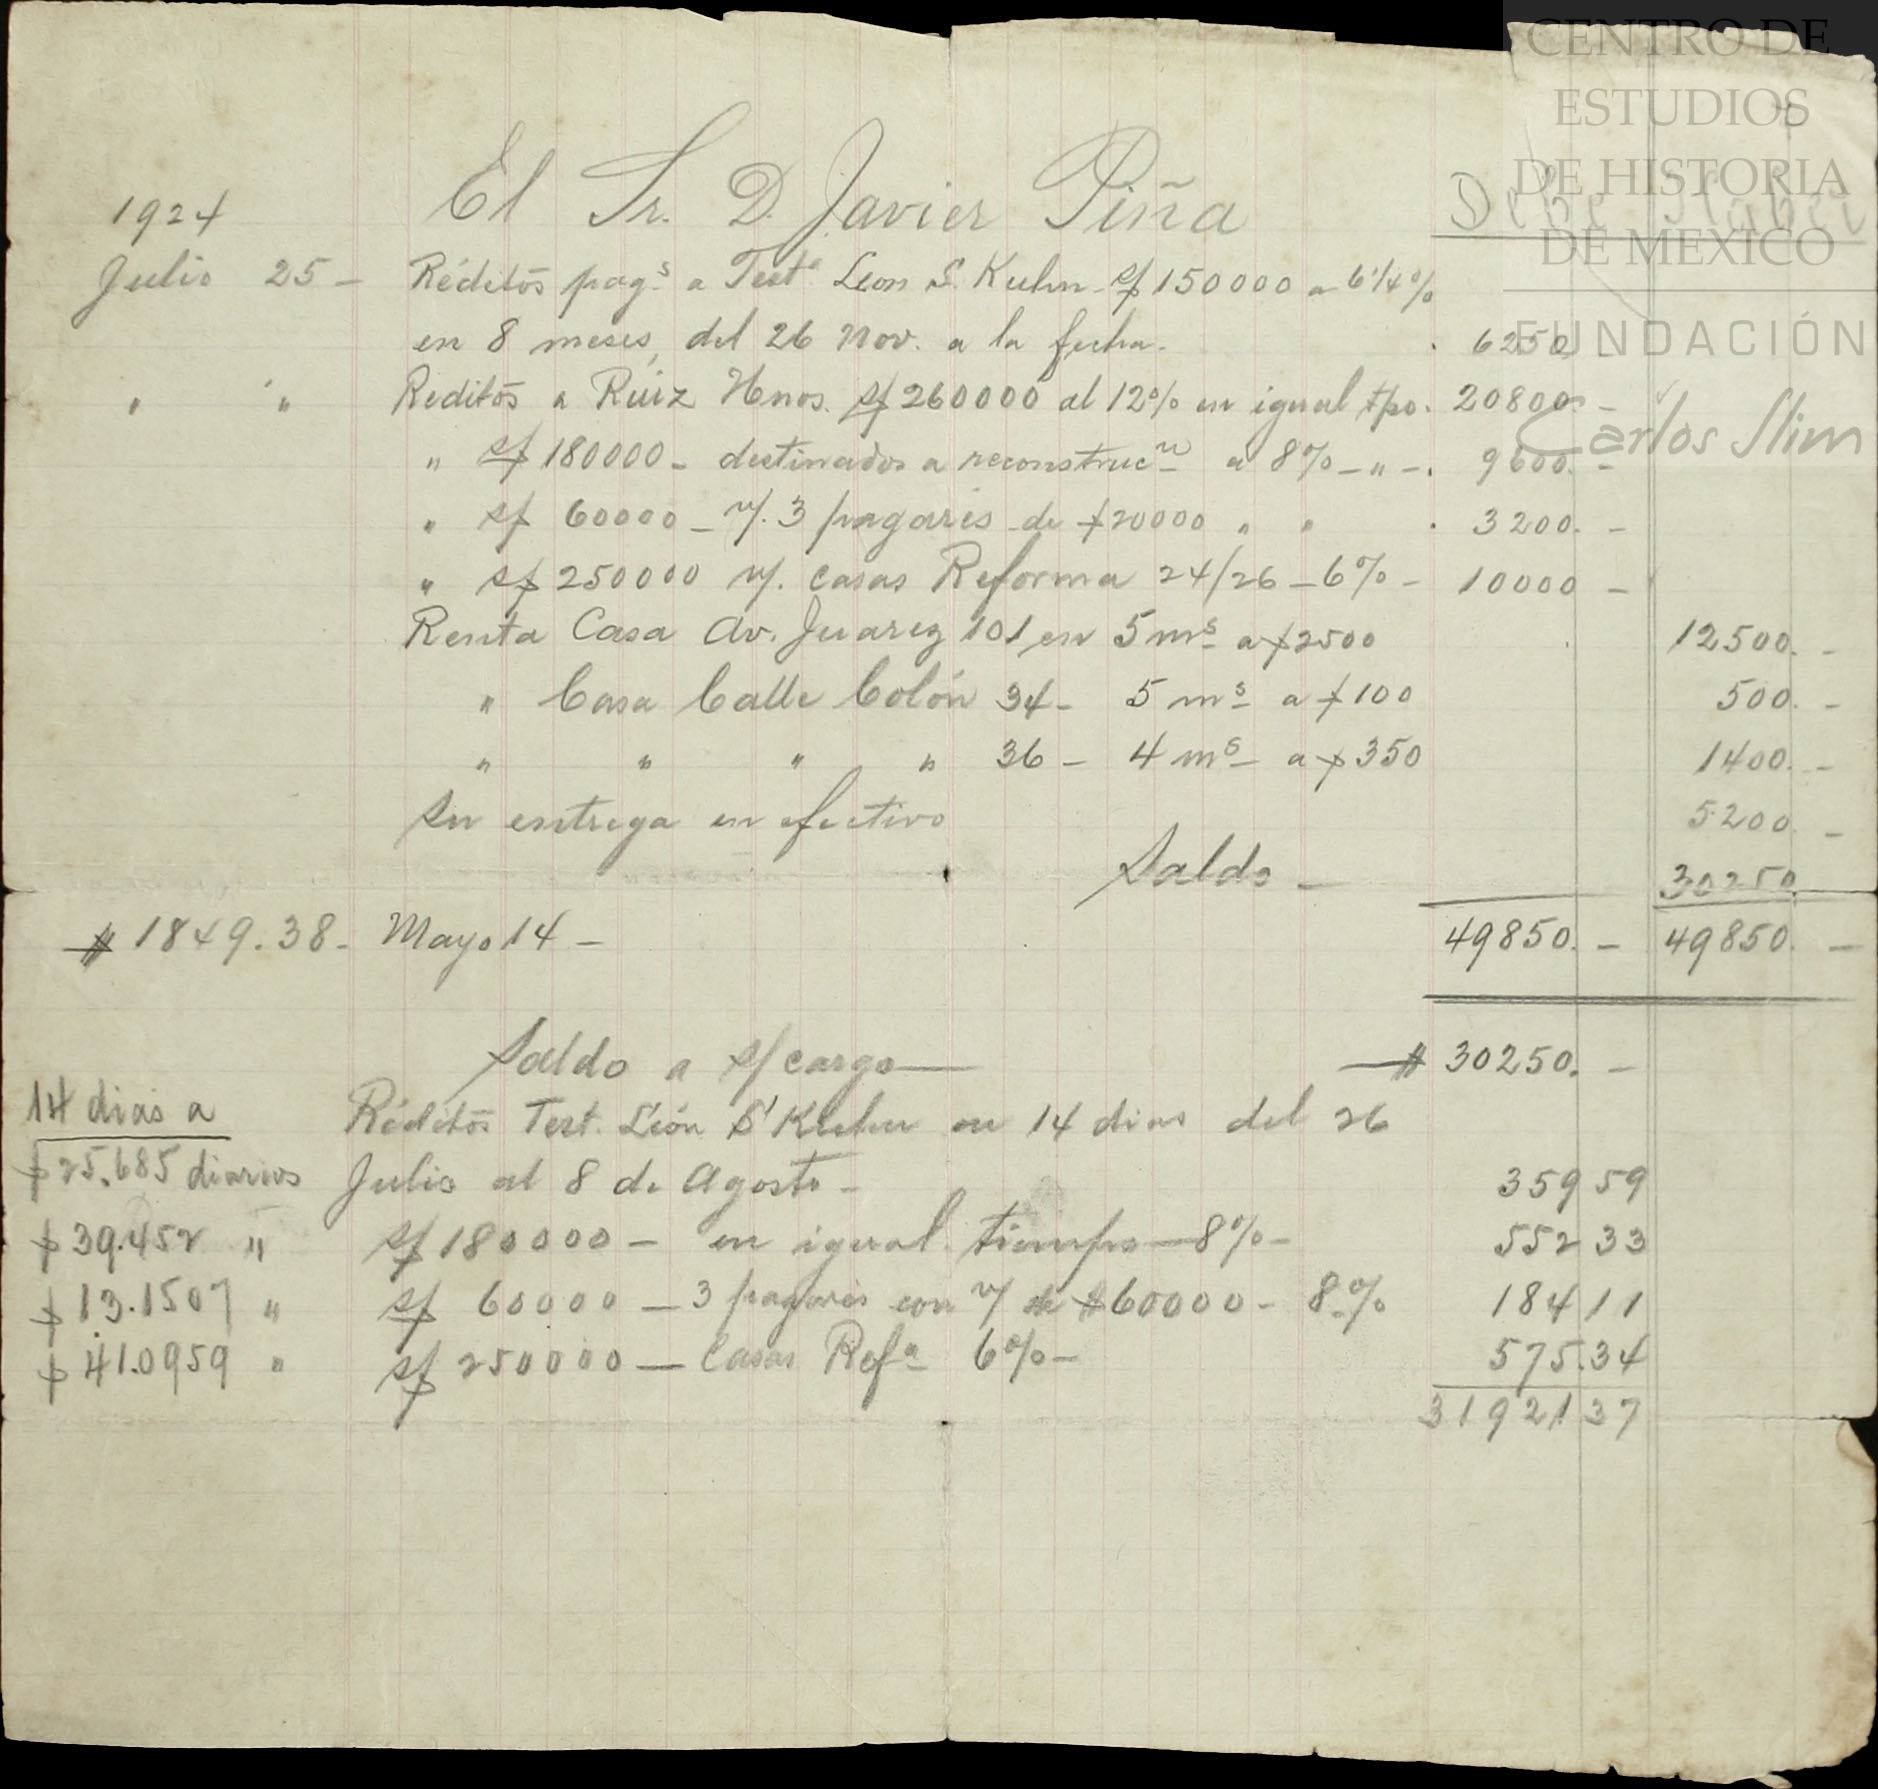 CENTRO DE
ESTUDIOS
DE HISTORIA
DE MEXICO
FUNDACIÓN
Carlos Slim
1924 El Sr. D. Javier Piña Debe Haber
Julio 25 — Réditos pag.s a Test.a Leon S. Kuhn s/ $150000 a 6 1/4 %
en 8 meses, del 26 Nov. a la fecha. 6250. —
" " Reditos a Ruiz Hnos. s/ $260000 al 12% en igual tpo. 20800. —
" s/ $180000 — destinados a reconstrucn a 8% — " — 9600. —
" s/ $ 60000 — v/. 3 pagarés de $20000 " " 3200. —
" s/ $250000 v/. casas Reforma 24/26 — 6% — 10000 —
Renta Casa Av. Juarez 101 en 5 ms a $2500 12500. —
" Casa Calle Colón 34 — 5 ms a $100 500. —
" " " " 36 — 4 ms a $350 1400. —
Su entrega en efectivo 5200. —
Saldo — 30250.
$ 1849.38 — Mayo 14 — 49850. — 49850. —
Saldo a s/ cargo — $ 30250. —
14 dias a Réditos Test. León S Kuhn en 14 dias del 26
$25.685 diarios Julio al 8 de Agosto — 359 59
$39.452 " s/ $180000 — en igual tiempo — 8% — 552 33
$13.1507 " s/ $ 60000 — 3 pagarés con v/ de $60000 — 8% 184 11
$41.0959 " s/ $250000 — Casas Refa 6% — 575.34
31921 37